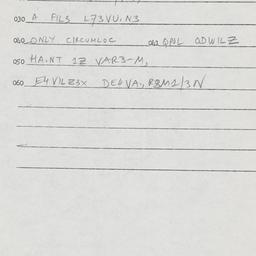 030 A FILS L73VU.N3
060 ONLY CIRCUMLOC 062 QPUL ODWILZ
050 HA.NT 1Z VAR3-M,
060 E4VILE3X DE6VA., R8M2/3N